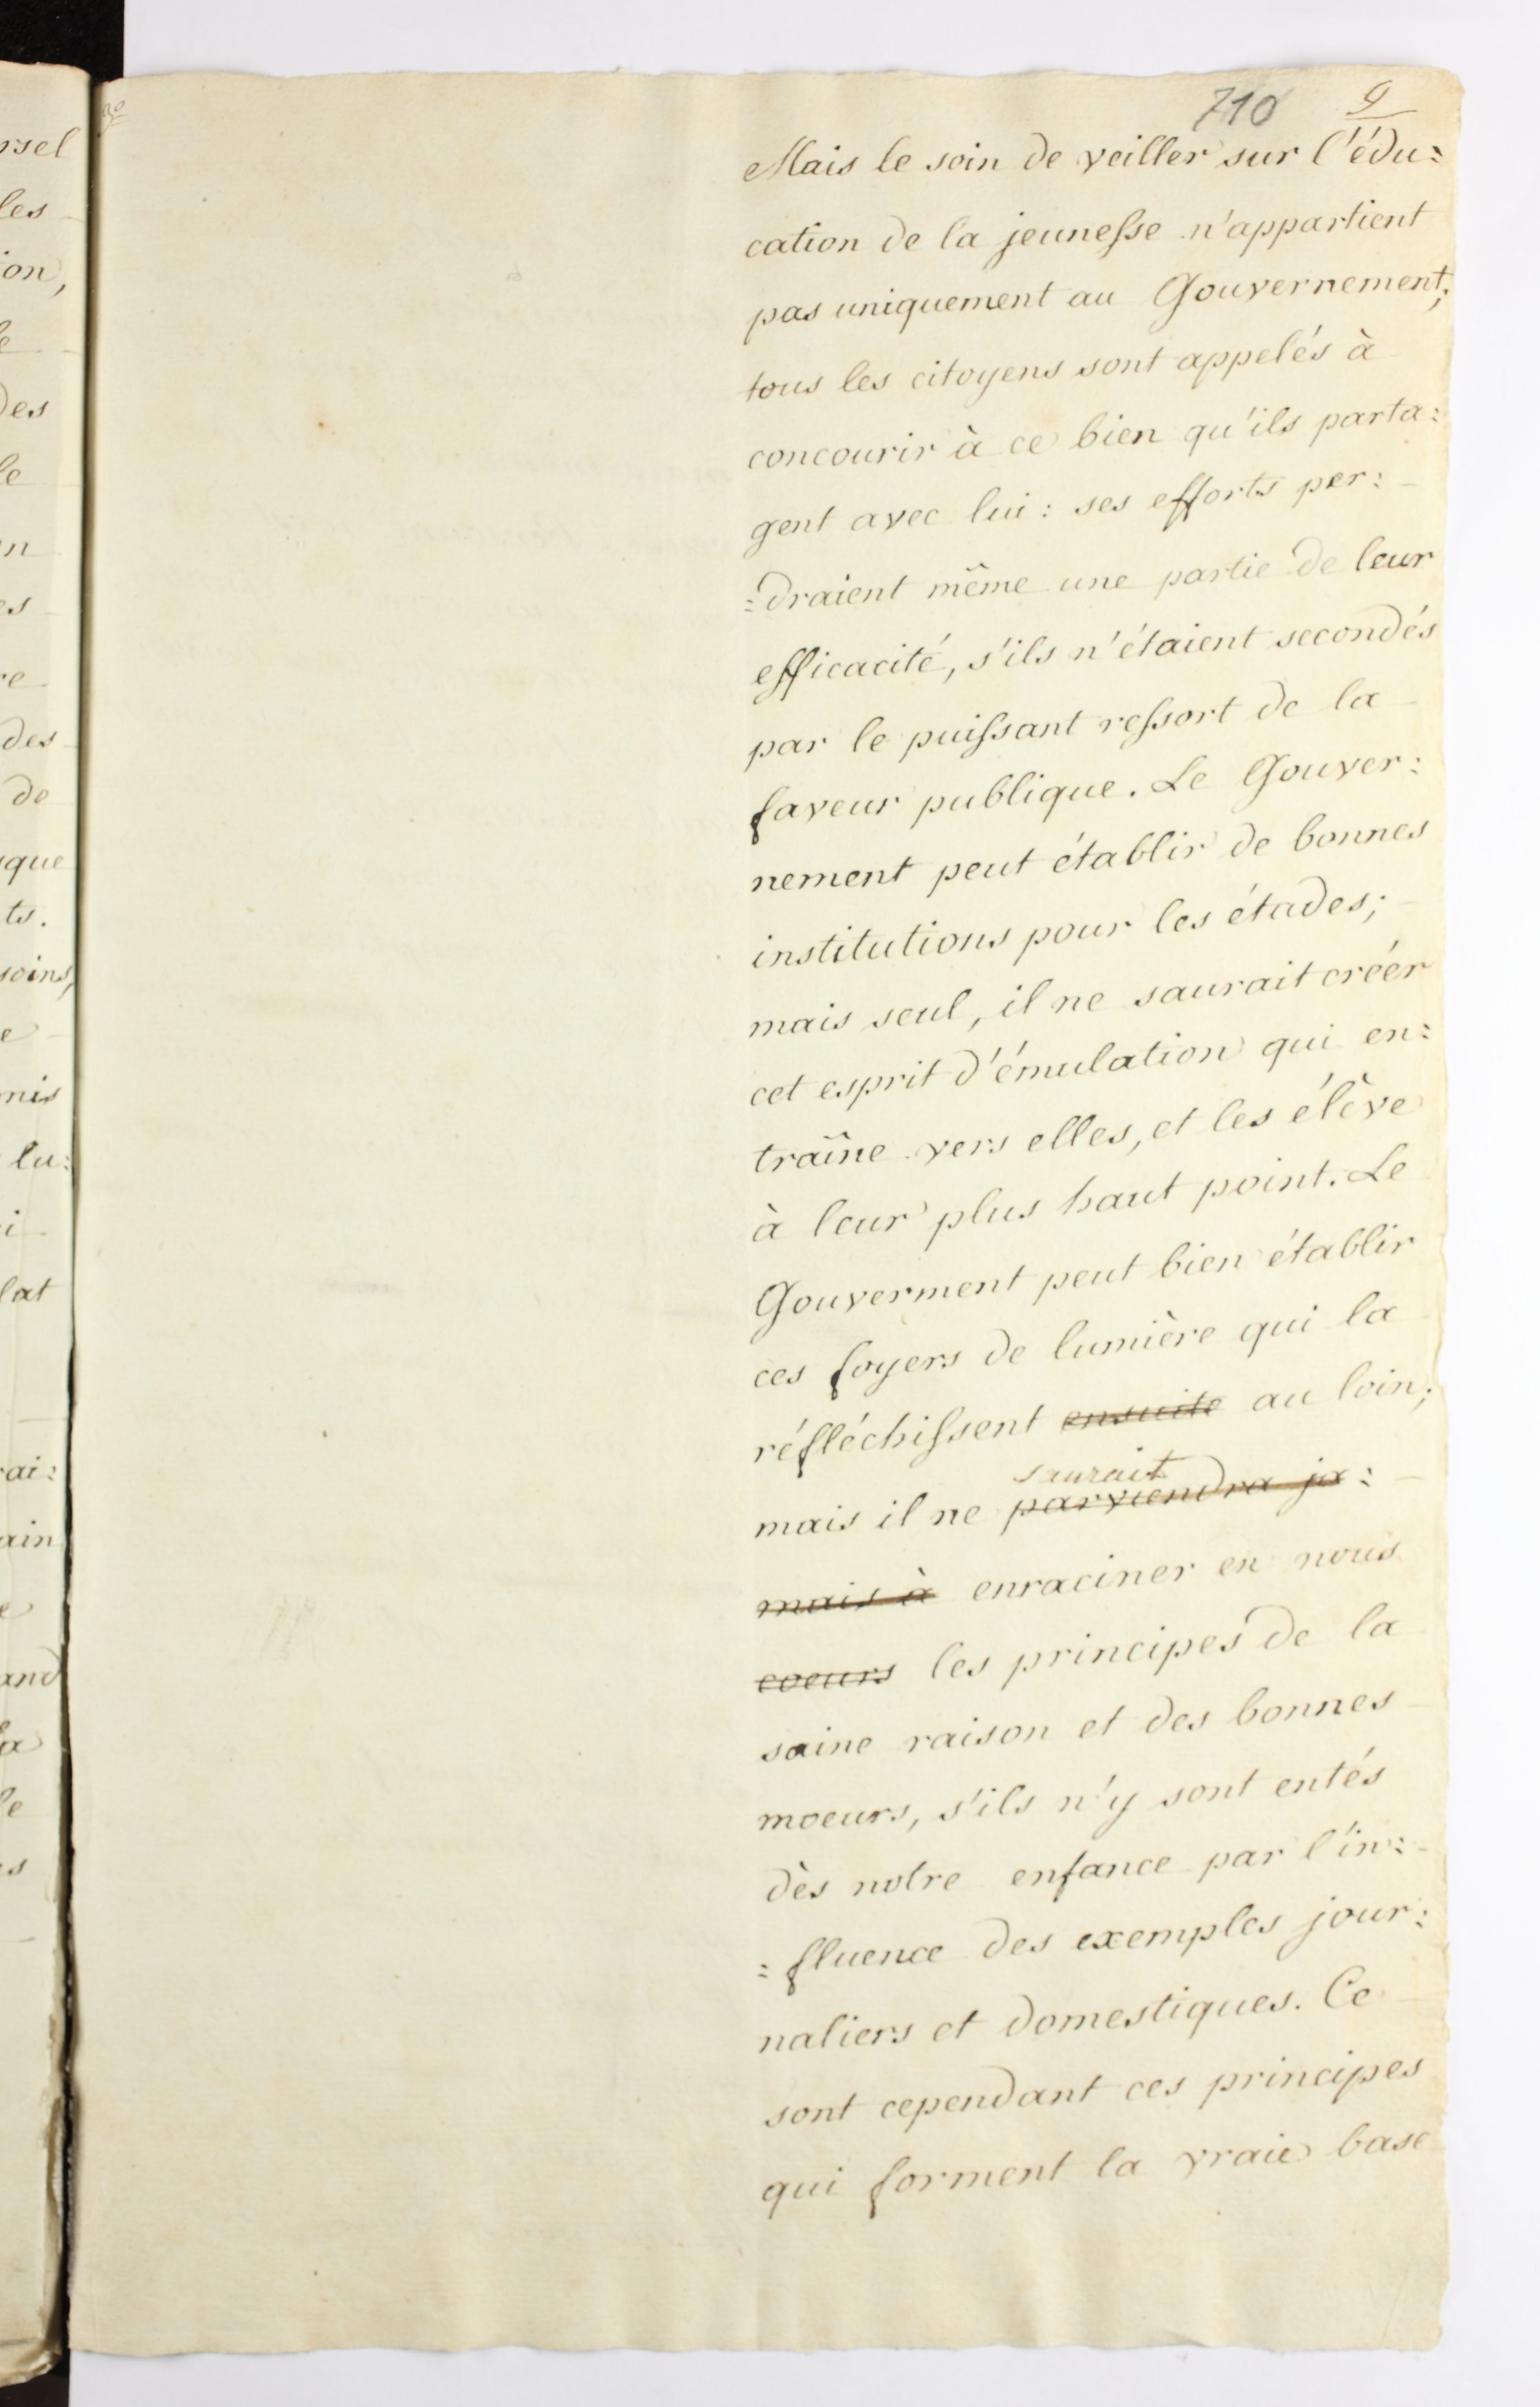 710 9
Mais le soin de veiller sur l'édu:
cation de la jeunesse n'appartient
pas uniquement au Gouvernement;
tous les citoyens sont appelés à
concourir à ce bien qu'ils parta:
gent avec lui: ses efforts per:
:draient même une partie de leur
efficacité, s'ils n'étaient secondés
par le puissant ressort de la
faveur publique. Le Gouver:
nement peut établir de bonnes
institutions pour les étades;
mais seul, il ne saurait créer
cet esprit d'émulation qui en:
traîne vers elles, et les élève
à leur plus haut point. Le
Gouverment peut bien établir
ces foyers de lumière qui la
réfléchissent ensuite au loin;
saurait
mais il ne parviendra ja:
mais à enraciner en nous
coeurs les principes de la
saine raison et des bonnes
moeurs, s'ils n'y sont entés
dès notre enfance par l'in:
:fluence des exemples jour:
naliers et domestiques. Ce
sont cependant ces principes
qui forment la vraie base
rsel
les
ion,
le
des
le
en
es
re
des
de
que
ts.
soins,
e
mis
lu:
i
lat
rai:
ain
e
and
la
le
es